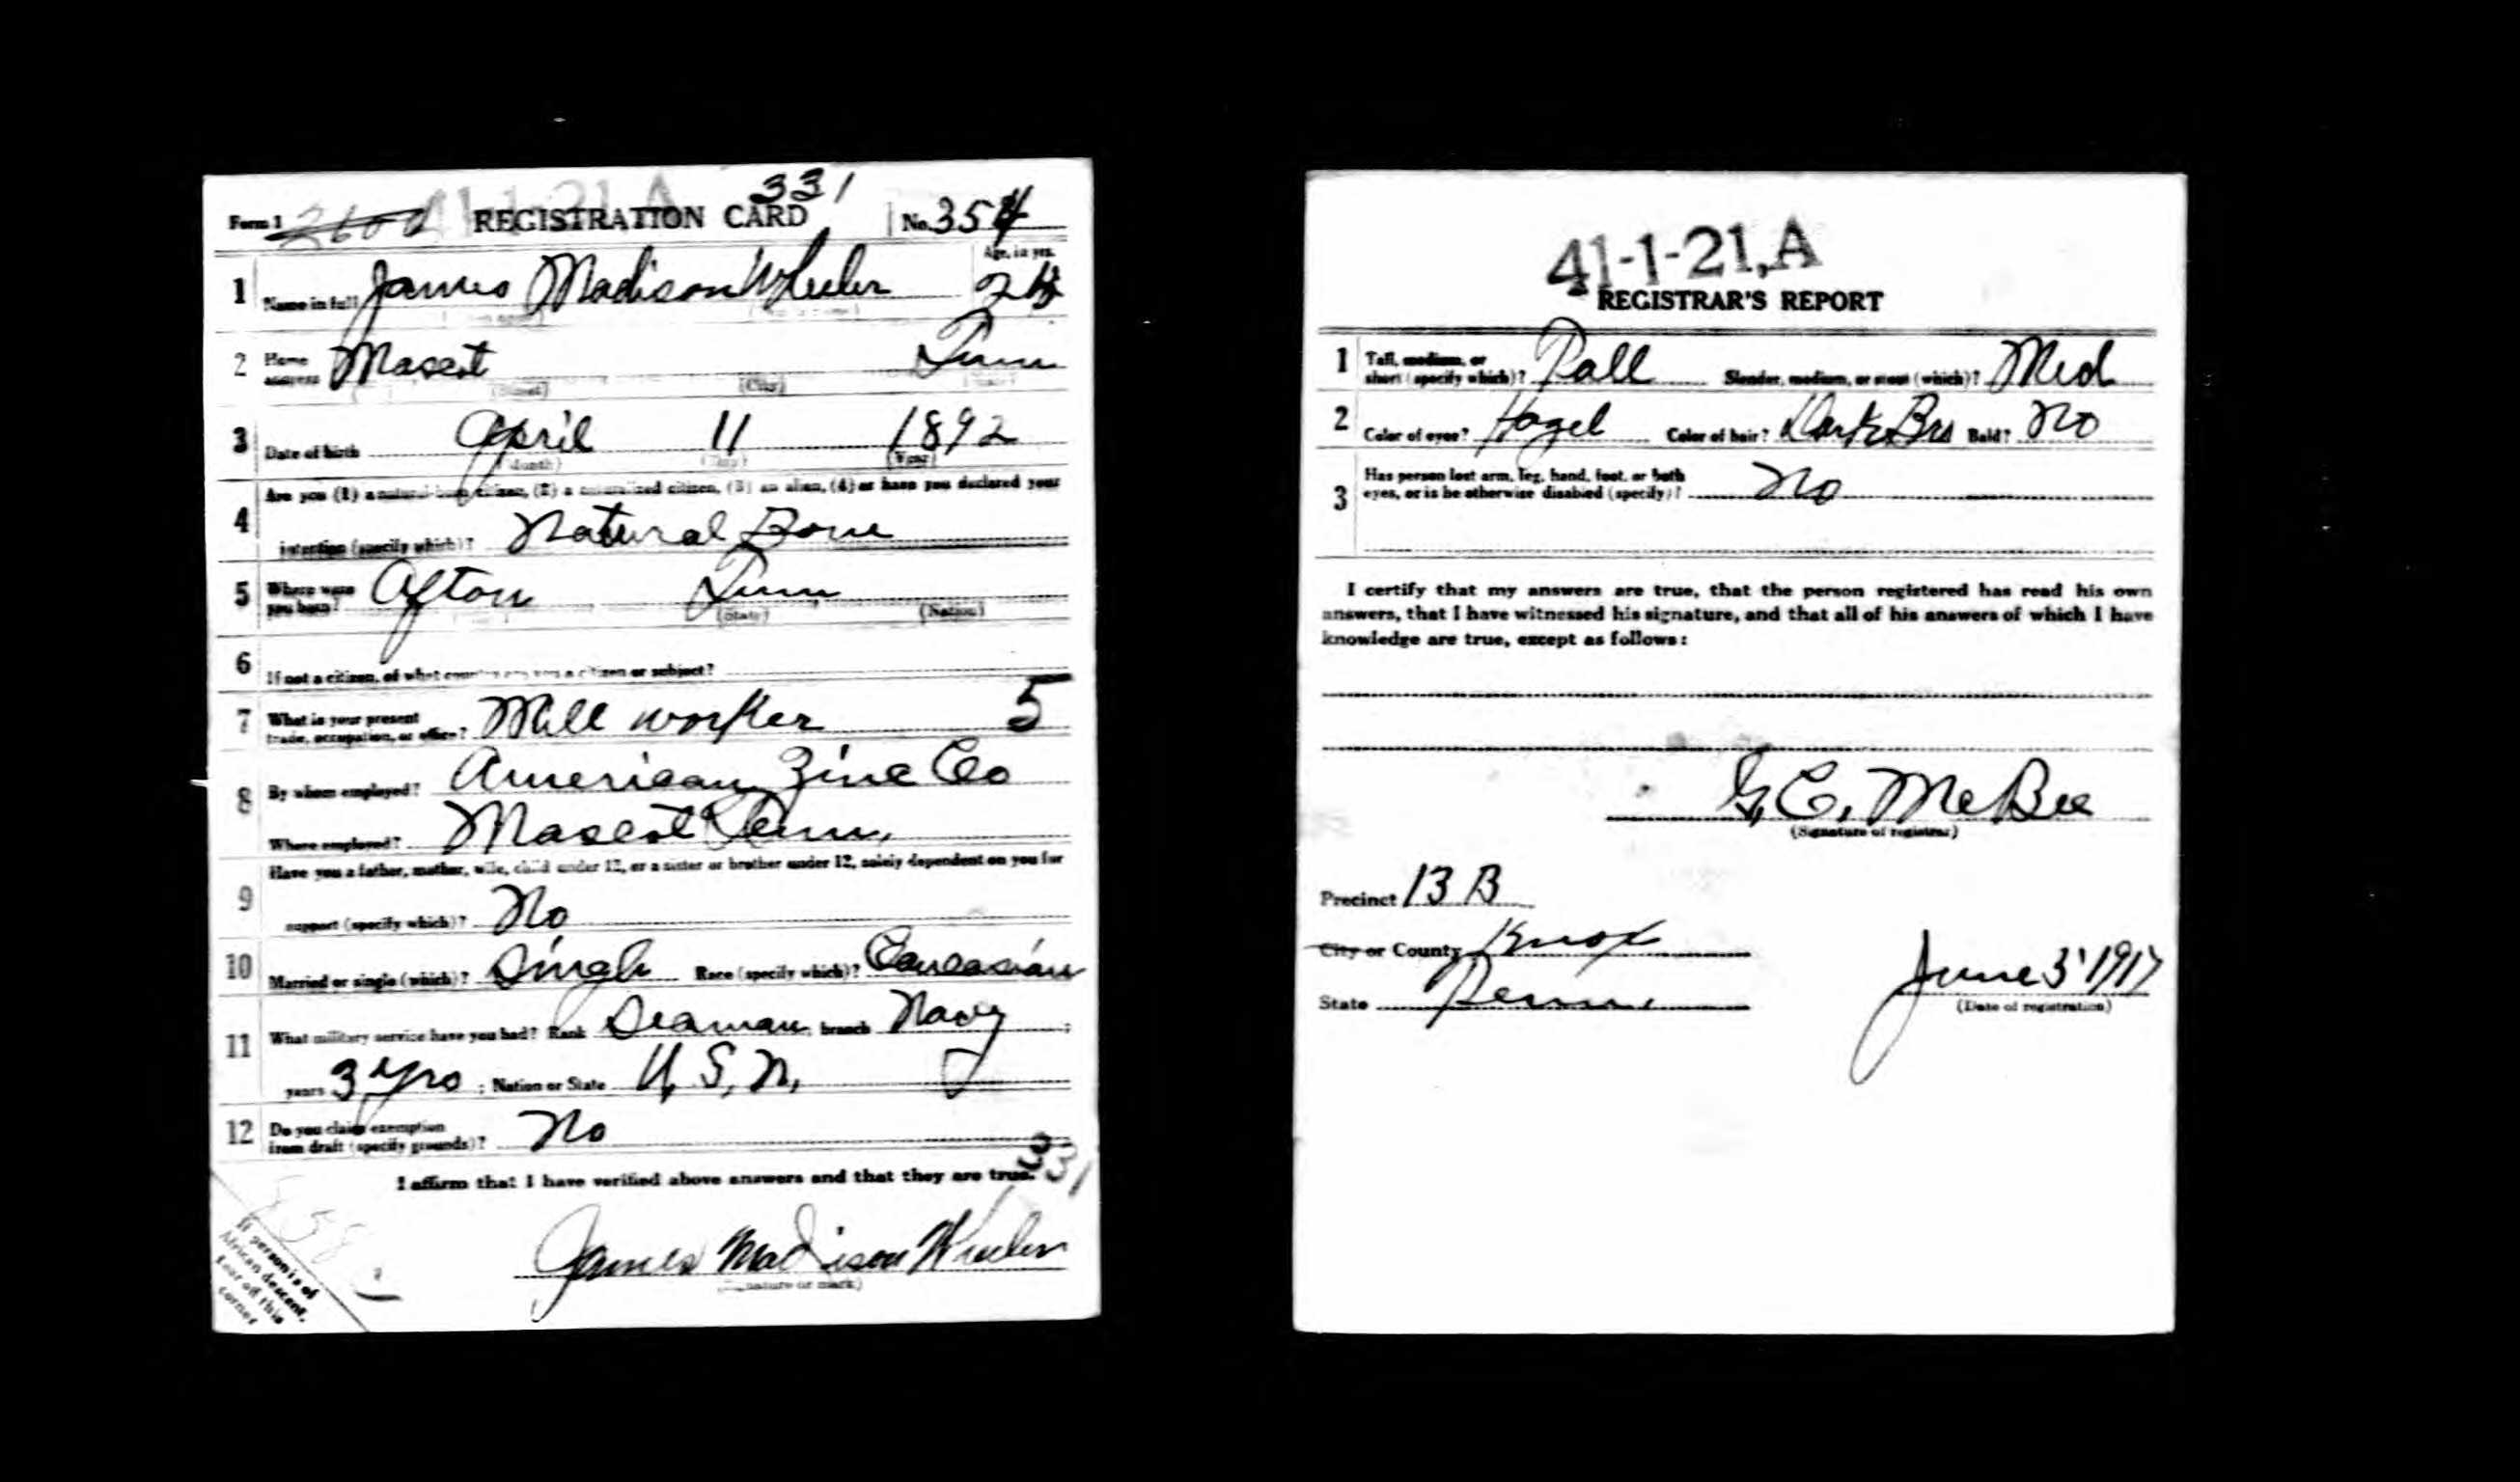 Form 1 41-1-21 A REGISTRATION CARD 331 No. 354
Age, in yrs.
1 Name in full James Madison Wheeler
2 Home address Mascot Tenn
(Street) (City)
3 Date of birth April 11 1892
(Month) (Day) (Year)
4 Are you (1) a natural-born citizen, (2) a naturalized citizen, (3) an alien, (4) or have you declared your
intention (specify which)? Natural Borne
5 Where were you born? Afton Tenn
(State) (Nation)
6 If not a citizen, of what country are you a citizen or subject?
7 What is your present trade, occupation, or office? Mill worker 5
8 By whom employed? American Zinc Co
Where employed? Mascot Tenn.
9 Have you a father, mother, wife, child under 12, or a sister or brother under 12, solely dependent on you for
support (specify which)? No
10 Married or single (which)? Single Race (specify which)? Caucasian
11 What military service have you had? Rank Seaman; branch Navy;
years 3 yrs; Nation or State U.S.N.
12 Do you claim exemption from draft (specify grounds)? No
I affirm that I have verified above answers and that they are true.
331
James Madison Wheeler
(Signature or mark)
If person is of
African descent,
tear off this
corner
41-1-21,A
REGISTRAR'S REPORT
1 Tall, medium, or short (specify which)? Tall Slender, medium, or stout (which)? Med
2 Color of eyes? Hazel Color of hair? Dark Brn Bald? No
3 Has person lost arm, leg, hand, foot, or both
eyes, or is he otherwise disabled (specify)? No
I certify that my answers are true, that the person registered has read his own
answers, that I have witnessed his signature, and that all of his answers of which I have
knowledge are true, except as follows:
G. C. McBee
(Signature of registrar)
Precinct 13 B
City or County Knox
State Tenn.
June 5' 1917
(Date of registration)